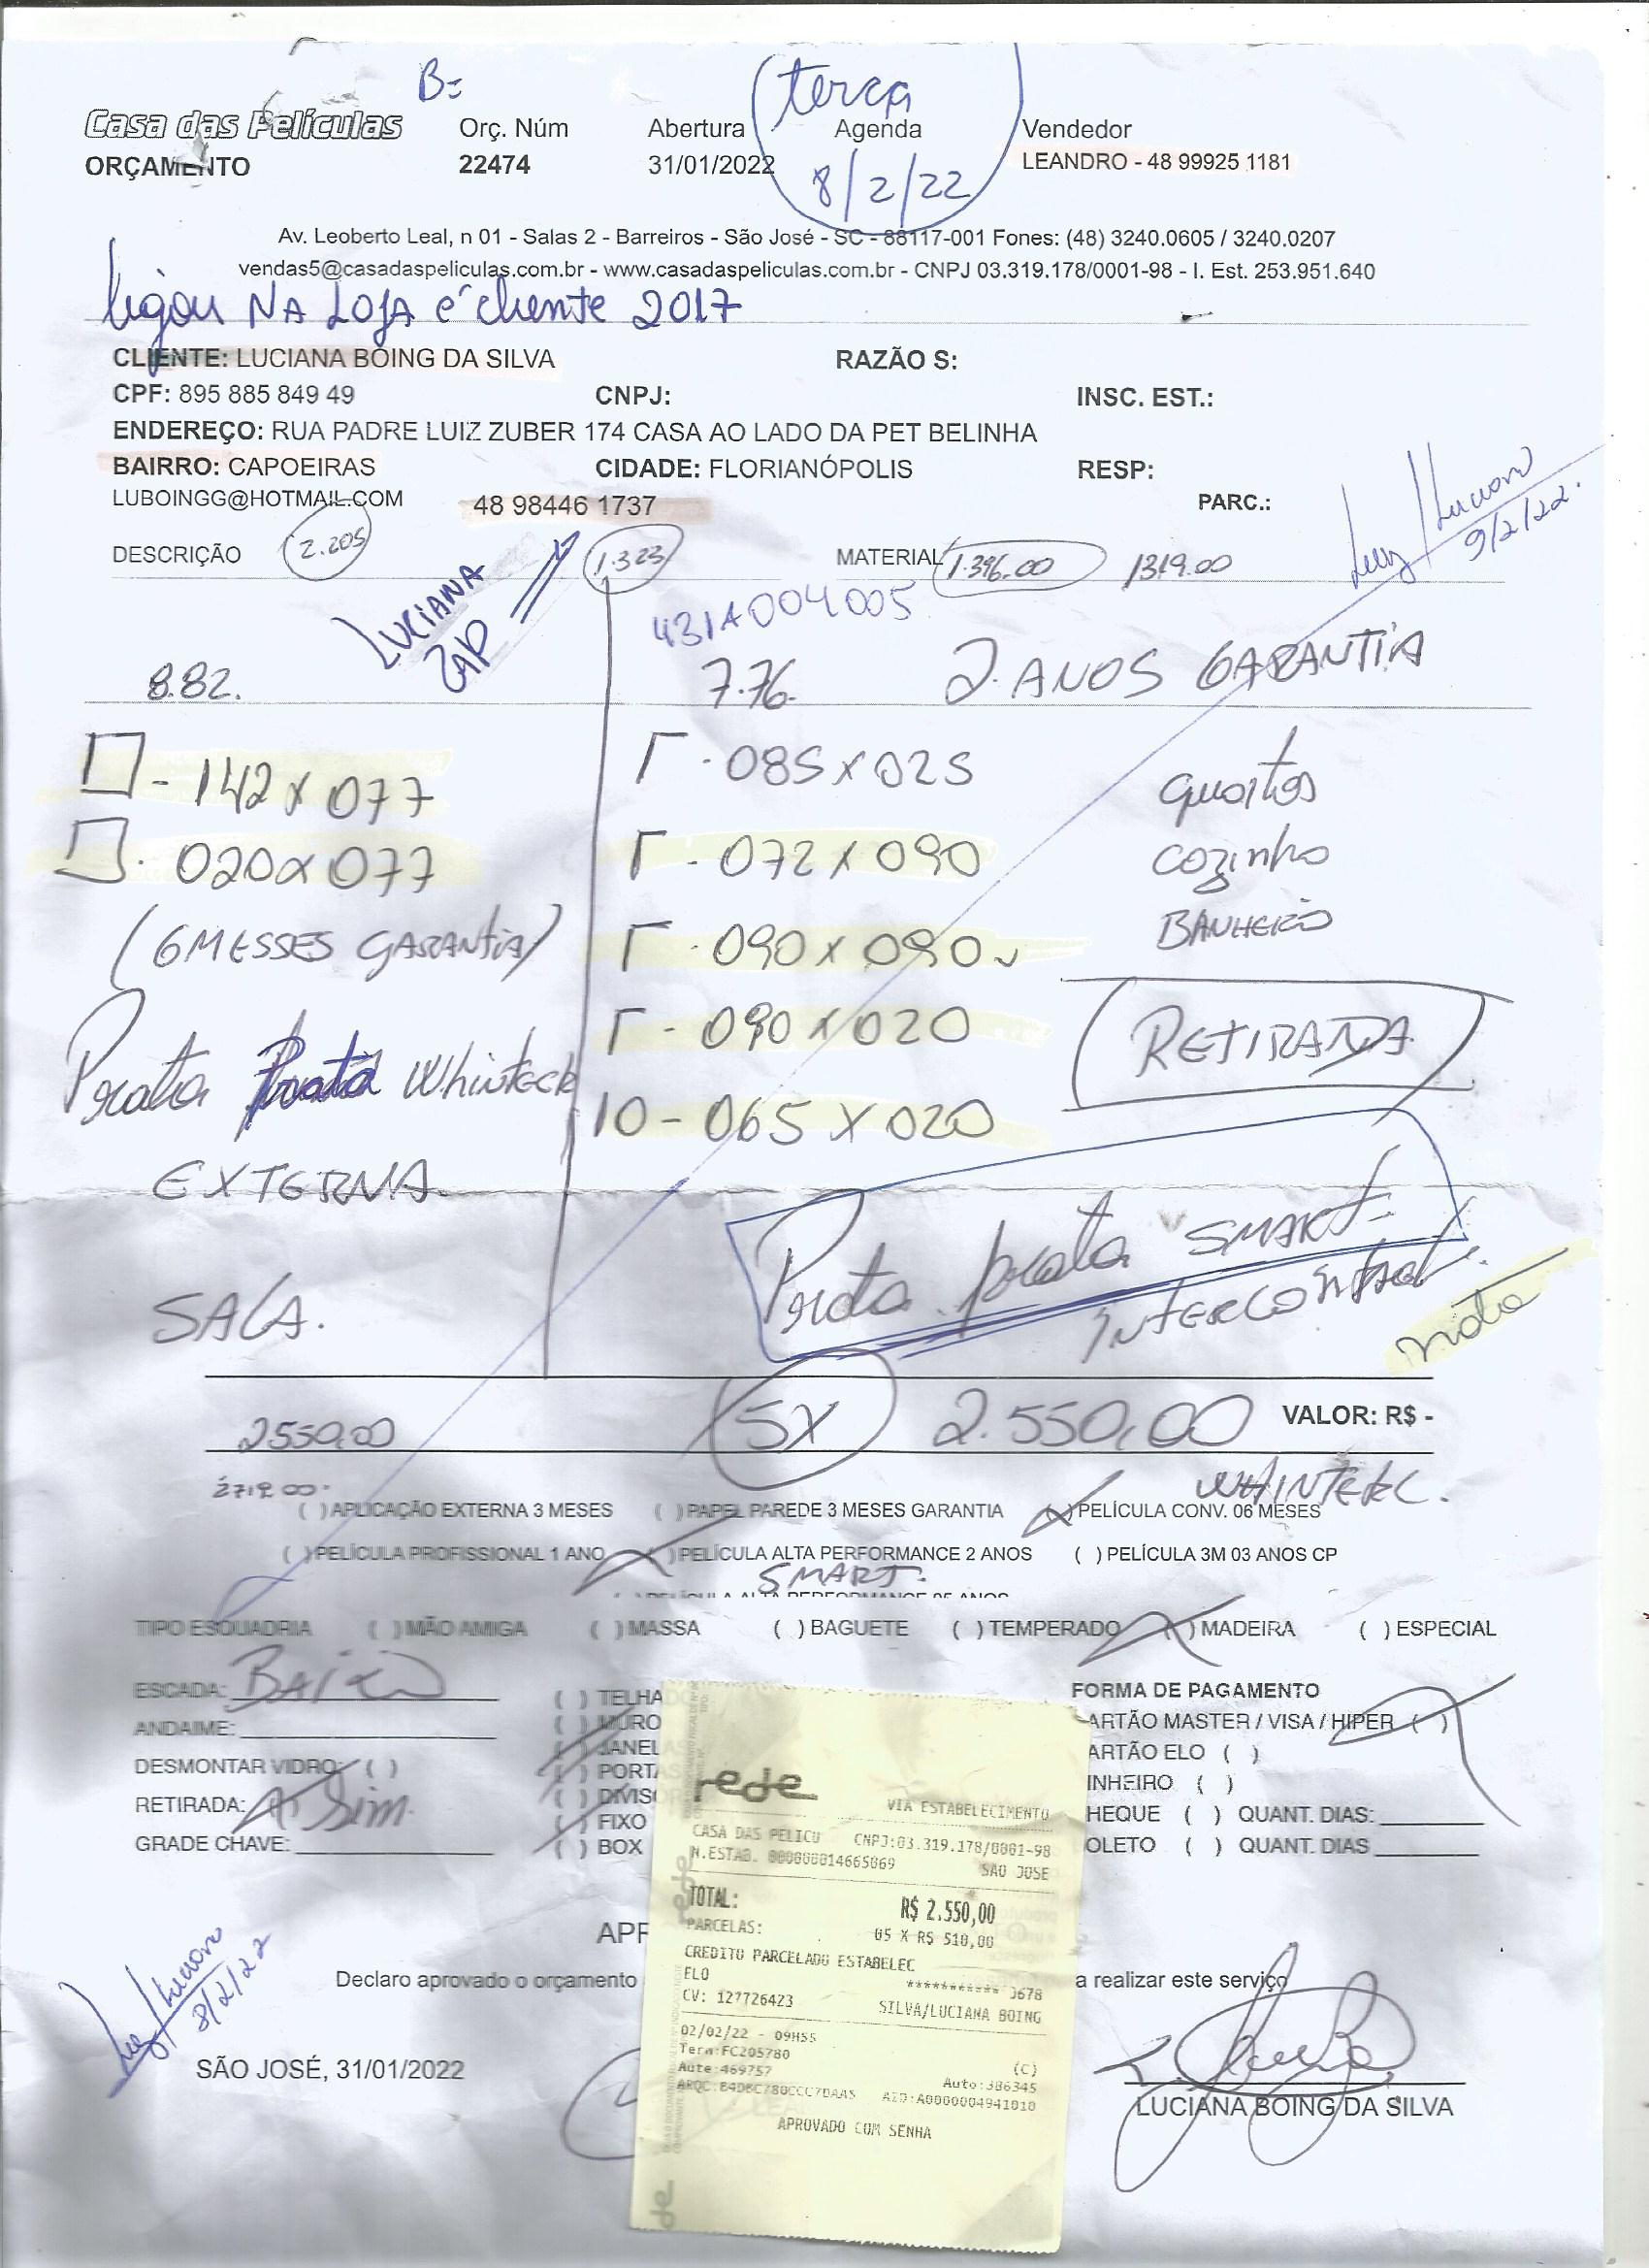 B=
terça
Casa das Películas Orç. Núm Abertura Agenda Vendedor
ORÇAMENTO 22474 31/01/2022 8/2/22 LEANDRO - 48 99925 1181
Av. Leoberto Leal, n 01 - Salas 2 - Barreiros - São José - SC - 88117-001 Fones: (48) 3240.0605 / 3240.0207
vendas5@casadaspeliculas.com.br - www.casadaspeliculas.com.br - CNPJ 03.319.178/0001-98 - I. Est. 253.951.640
ligou NA LOJA é cliente 2017
CLIENTE: LUCIANA BOING DA SILVA RAZÃO S:
CPF: 895 885 849 49 CNPJ: INSC. EST.:
ENDEREÇO: RUA PADRE LUIZ ZUBER 174 CASA AO LADO DA PET BELINHA
BAIRRO: CAPOEIRAS CIDADE: FLORIANÓPOLIS RESP:
LUBOINGG@HOTMAIL.COM 48 98446 1737 PARC.:
Luciano
9/2/22.
DESCRIÇÃO 2.205 1.323 MATERIAL 1.396.00 1319.00
LUCIANA
ZAP
431A004005
8.82. 7.76. 2 ANOS GARANTIA
- 142 x 077
085 x 025
quartos
020 x 077
072 x 090
cozinha
(6 MESSES GARANTIA)
090 x 090
BANHEIRO
Prata Prata Whinteck
090 x 020
RETIRADA
10 - 065 x 020
EXTERNA.
Prata prata SMART
INTERCONTROL
nota
SALA.
2550,00 5X 2.550,00 VALOR: R$ -
2719.00. WHINTEKC.
( ) APLICAÇÃO EXTERNA 3 MESES ( ) PAPEL PAREDE 3 MESES GARANTIA (X) PELÍCULA CONV. 06 MESES
( ) PELÍCULA PROFISSIONAL 1 ANO (X) PELÍCULA ALTA PERFORMANCE 2 ANOS ( ) PELÍCULA 3M 03 ANOS CP
SMART.
( ) PELÍCULA ALTA PERFORMANCE 05 ANOS
TIPO ESQUADRIA ( ) MÃO AMIGA ( ) MASSA ( ) BAGUETE ( ) TEMPERADO (X) MADEIRA ( ) ESPECIAL
ESCADA: BAIXO
ANDAIME:
DESMONTAR VIDRO: ( )
RETIRADA: (X) Sim.
GRADE CHAVE:
( ) TELHADO
( ) MURO
( ) JANEL
( ) PORTA
( ) DIVISO
( ) FIXO
( ) BOX
FORMA DE PAGAMENTO
ARTÃO MASTER / VISA / HIPER ( )
ARTÃO ELO ( )
INHEIRO ( )
HEQUE ( ) QUANT. DIAS:
OLETO ( ) QUANT. DIAS
rede
VIA ESTABELECIMENTO
CASA DAS PELICU CNPJ:03.319.178/0001-98
N.ESTAB. 000000014665069 SAO JOSE
TOTAL: R$ 2.550,00
PARCELAS: 05 X R$ 510,00
CREDITO PARCELADO ESTABELEC
ELO *********** 3678
CV: 127726423 SILVA/LUCIANA BOING
02/02/22 - 09H55
Term:FC205780 (C)
Aute:469757 Auto:386345
AID:A0000004941010
APROVADO COM SENHA
APR
Declaro aprovado o orçamento a realizar este serviço
Luciano
8/2/22
SÃO JOSÉ, 31/01/2022
LUCIANA BOING DA SILVA